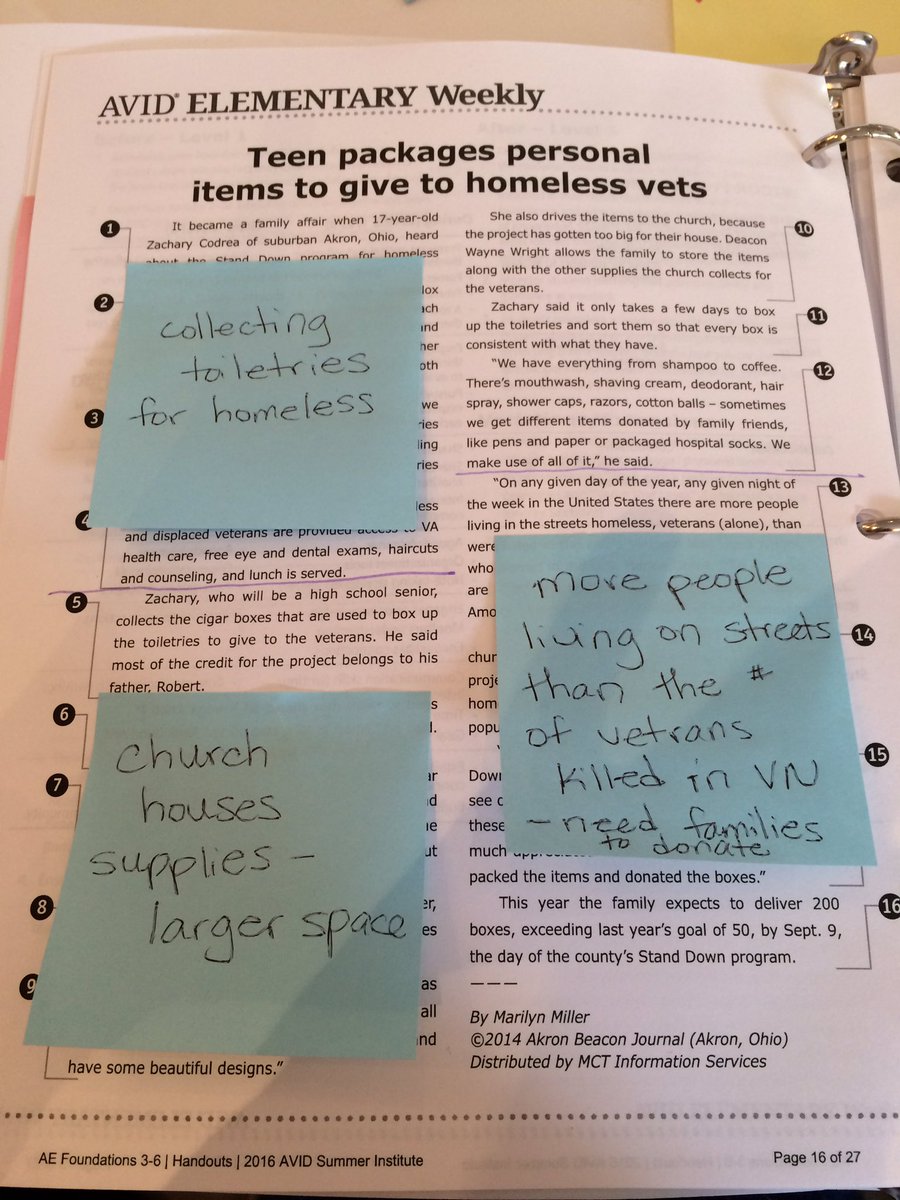 AVID® ELEMENTARY Weekly
Teen packages personal
items to give to homeless vets
1
It became a family affair when 17-year-old
Zachary Codrea of suburban Akron, Ohio, heard
about the Stand Down program for homeless
2
collecting
toiletries
for homeless
3
4
and displaced veterans are provided access to VA
health care, free eye and dental exams, haircuts
and counseling, and lunch is served.
5
Zachary, who will be a high school senior,
collects the cigar boxes that are used to box up
the toiletries to give to the veterans. He said
most of the credit for the project belongs to his
father, Robert.
6
7
church
houses
supplies –
larger space
8
9
as
all
have some beautiful designs.”
She also drives the items to the church, because
10
the project has gotten too big for their house. Deacon
Wayne Wright allows the family to store the items
along with the other supplies the church collects for
the veterans.
Zachary said it only takes a few days to box
11
up the toiletries and sort them so that every box is
consistent with what they have.
“We have everything from shampoo to coffee.
12
There’s mouthwash, shaving cream, deodorant, hair
spray, shower caps, razors, cotton balls – sometimes
we get different items donated by family friends,
like pens and paper or packaged hospital socks. We
make use of all of it,” he said.
“On any given day of the year, any given night of
13
the week in the United States there are more people
living in the streets homeless, veterans (alone), than
were
who
are
more people
living on streets
than the #
of vetrans
killed in VN
– need families
to donate
14
15
see
these
much
packed the items and donated the boxes.”
This year the family expects to deliver 200
16
boxes, exceeding last year’s goal of 50, by Sept. 9,
the day of the county’s Stand Down program.
———
By Marilyn Miller
©2014 Akron Beacon Journal (Akron, Ohio)
Distributed by MCT Information Services
AE Foundations 3-6 | Handouts | 2016 AVID Summer Institute
Page 16 of 27